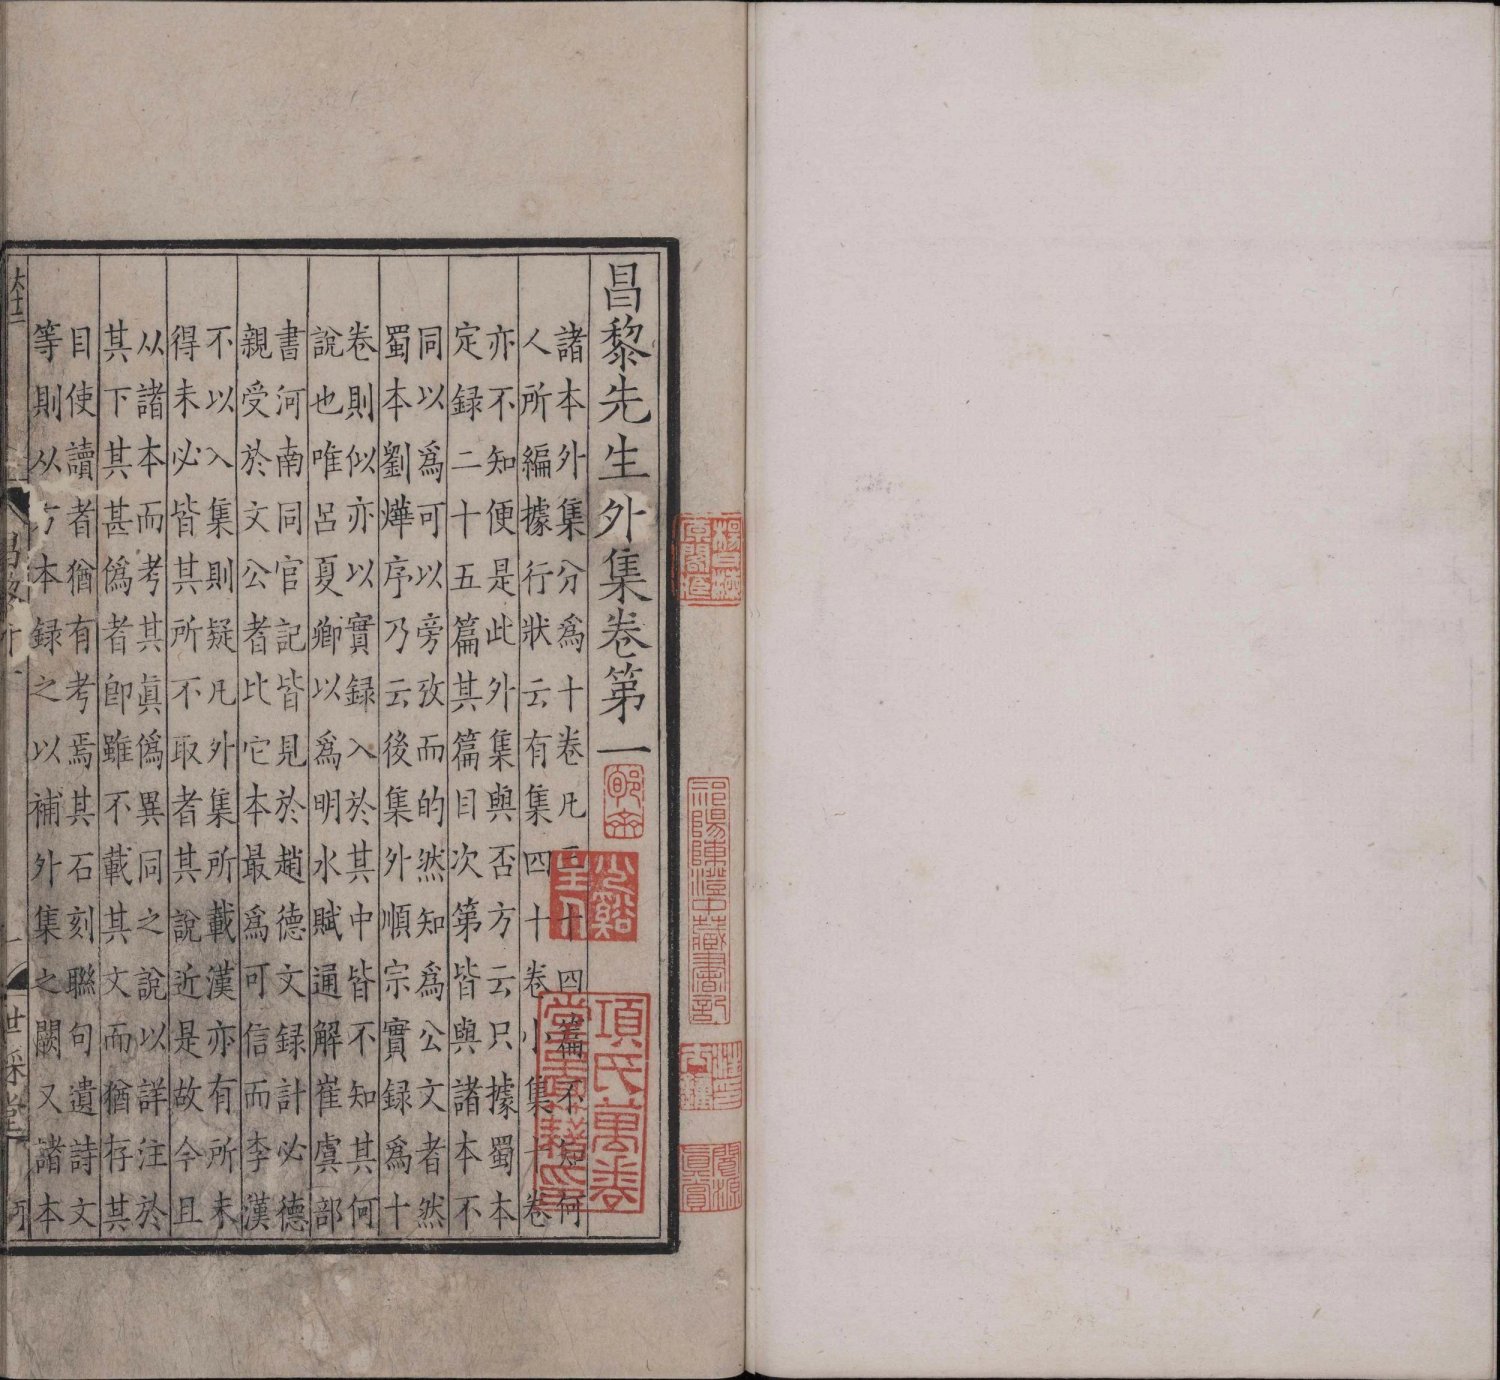 楊氏海原閣藏
祁陽陳澄中藏書記
汪印士鐘
閬源真賞
昌黎先生外集卷第一
郇齋
少谿主人
項氏萬卷堂圖籍印
諸本外集分爲十卷凡三十四篇不知何
人所編據行狀云有集四十卷小集十卷
亦不知便是此外集與否方云只據蜀本
定録二十五篇其篇目次第皆與諸本不
同以爲可以旁攷而的然知爲公文者然
蜀本劉燁序乃云後集外順宗實録爲十
卷則似亦以實録入於其中皆不知其何
說也唯呂夏卿以爲明水賦通解崔虞部
書河南同官記皆見於趙德文録計必德
親受於文公者比它本最爲可信而李漢
不以入集則疑凡外集所載漢亦有所未
得未必皆其所不取者其說近是故今且
从諸本而考其眞僞異同之說以詳注於
其下其甚僞者即雖不載其文而猶存其
目使讀者猶有考焉其石刻聯句遺詩文
等則从方本録之以補外集之闕又諸本
世綵堂